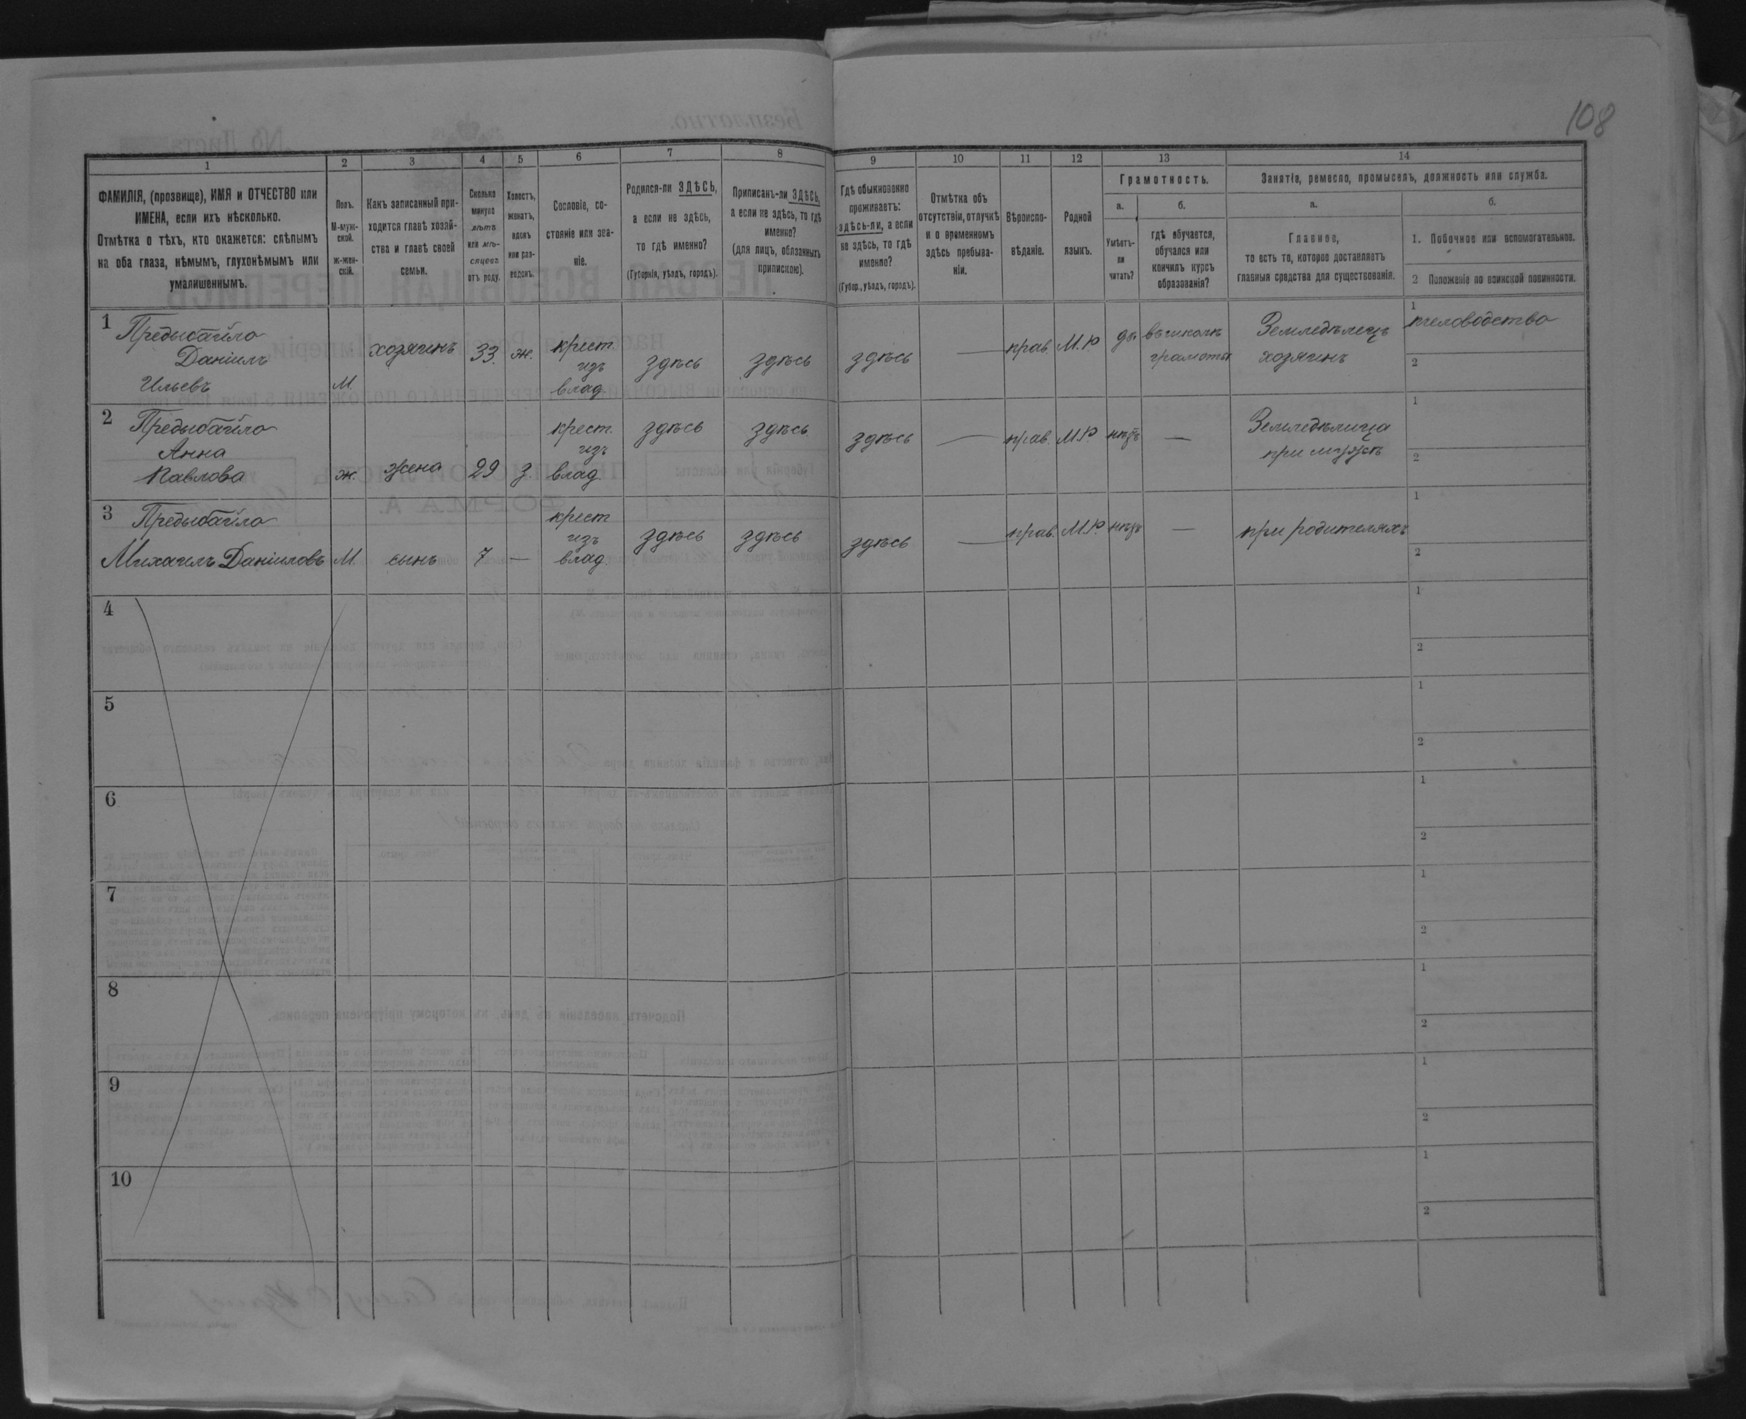 108
1 2 3 4 5 6 7 8 9 10 11 12 13 14
ФАМИЛІЯ, (прозвище), ИМЯ и ОТЧЕСТВО или
ИМЕНА, если ихъ нѣсколько.
Отмѣтка о тѣхъ, кто окажется: слѣпымъ
на оба глаза, нѣмымъ, глухонѣмымъ или
умалишеннымъ.
Полъ.
М-муж-
ской.
Ж-жен-
скій.
Какъ записанный при-
ходится главѣ хозяй-
ства и главѣ своей
семьи.
Сколько
минуло
лѣтъ
или мѣ-
сяцевъ
отъ роду.
Холостъ,
женатъ,
вдовъ
или раз-
веденъ.
Сословіе, со-
стояніе или зва-
ніе.
Родился-ли ЗДѢСЬ,
а если не здѣсь,
то гдѣ именно?
(Губернія, уѣздъ, городъ).
Приписанъ-ли ЗДѢСЬ,
а если не здѣсь, то гдѣ
именно?
(для лицъ, обязанныхъ
припискою).
Гдѣ обыкновенно
проживаетъ:
здѣсь-ли, а если
не здѣсь, то гдѣ
именно?
(Губер., уѣздъ, городъ).
Отмѣтка объ
отсутствіи, отлучкѣ
и о временномъ
здѣсь пребыва-
ніи.
Вѣроиспо-
вѣданіе.
Родной
языкъ.
Грамотность.
а.
Умѣетъ-
ли
читать?
б.
гдѣ обучается,
обучался или
кончилъ курсъ
образованія?
Занятія, ремесло, промыселъ, должность или служба.
а.
Главное,
то есть то, которое доставляетъ
главныя средства для существованія.
б.
1. Побочное или вспомогательное.
2 Положеніе по воинской повинности.
1 Предыбайло
Даніилъ
Ильевъ
М
хозяинъ
33
ж.
крест.
изъ
влад.
здѣсь
здѣсь
здѣсь
—
прав.
М.Р.
да
въ школѣ
грамоты
Земледѣлецъ
хозяинъ
1 пчеловодство
2
2 Предыбайло
Анна
Павлова
ж.
жена
29
з.
крест.
изъ
влад.
здѣсь
здѣсь
здѣсь
—
прав.
М.Р.
нѣтъ
—
Земледѣлица
при мужѣ
1
2
3 Предыбайло
Михаилъ Даніиловъ
М
сынъ
7
—
крест.
изъ
влад.
здѣсь
здѣсь
здѣсь
—
прав.
М.Р.
нѣтъ
—
при родителяхъ
1
2
4
1
2
5
1
2
6
1
2
7
1
2
8
1
2
9
1
2
10
1
2